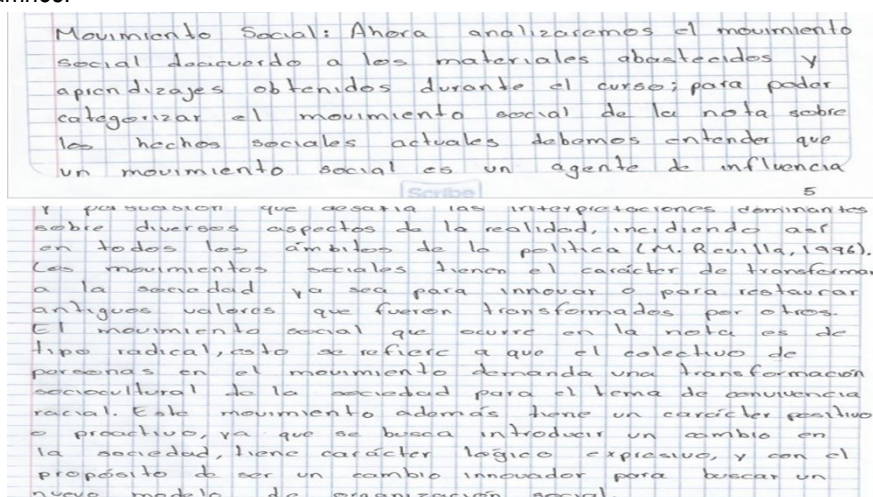 Movimiento Social: Ahora analizaremos el movimiento
social deacuerdo a los materiales abastecidos y
aprendizajes obtenidos durante el curso; para poder
categorizar el movimiento social de la nota sobre
los hechos sociales actuales debemos entender que
un movimiento social es un agente de influencia
Scribe
5
y persuasión que desafía las interpretaciones dominantes
sobre diversos aspectos de la realidad, incidiendo así
en todos los ámbitos de la política (M. Revilla, 1996).
Los movimientos sociales tienen el carácter de transformar
a la sociedad ya sea para innovar o para restaurar
antiguos valores que fueron transformados por otros.
El movimiento social que ocurre en la nota es de
tipo radical, esto se refiere a que el colectivo de
personas en el movimiento demanda una transformación
sociocultural de la sociedad para el tema de convivencia
racial. Este movimiento además tiene un carácter positivo
o proactivo, ya que se busca introducir un cambio en
la sociedad, tiene carácter lógico expresivo, y con el
propósito de ser un cambio innovador para buscar un
nuevo modelo de organización social.